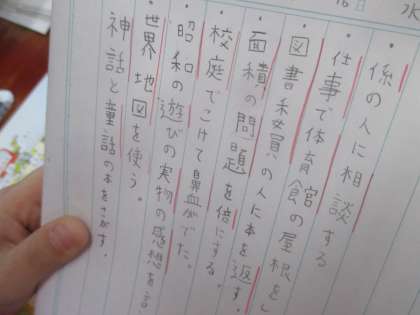 16日 水
・係の人に相談する
・仕事で体育館の屋根を
・図書委員の人に本を返す。
・面積の問題を倍にする。
・校庭でこけて鼻血がでた。
・昭和の遊びの実物の感想を言
・世界地図を使う。
神話と童話の本をさがす。